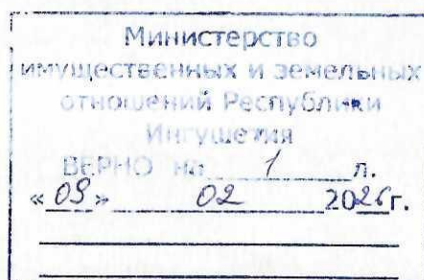 Министерство
имущественных и земельных
отношений Республики
Ингушетия
ВЕРНО на 1 л.
«09» 02 2026г.